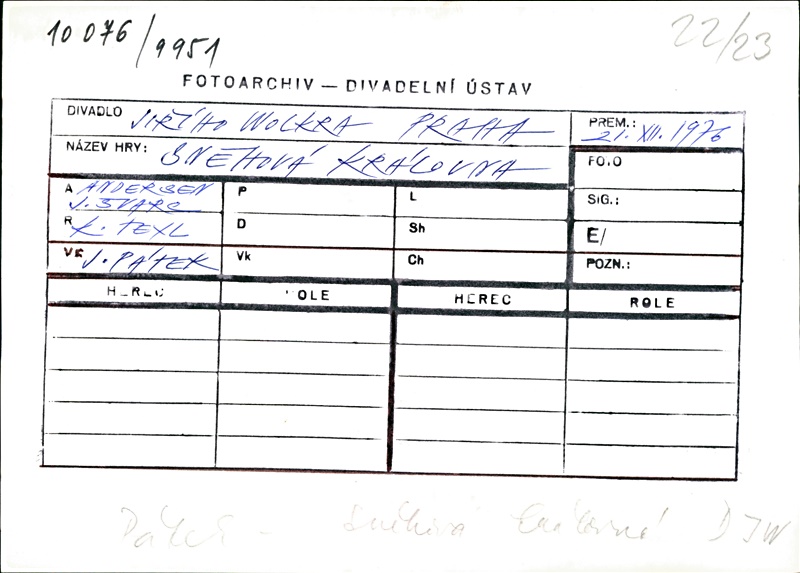 10 076/9951
22/23
FOTOARCHIV — DIVADELNÍ ÚSTAV
DIVADLO JIŘÍHO WOLKRA PRAHA
PREM.: 21. XII. 1976
NÁZEV HRY: SNĚHOVÁ KRÁLOVNA
FOTO
A ANDERSEN
J. ŠVARC
P
L
SIG.:
R K. TEXL
D
Sh
E/
VK J. PÁTEK
Vk
Ch
POZN.:
HEREC ROLE HEREC ROLE
Pátek - Sněhová DJW